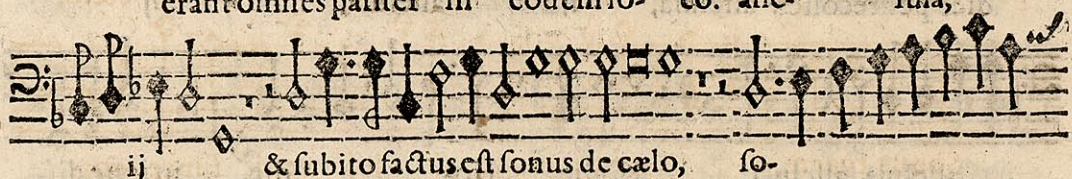 erant omnes pariter in eodem lo- co. alle- luia,
ij & ſubito factus eſt ſonus de cælo, ſo-